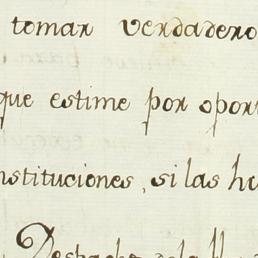 tomar verdadero
que estime por opor
nstituciones, si las h
Despacho